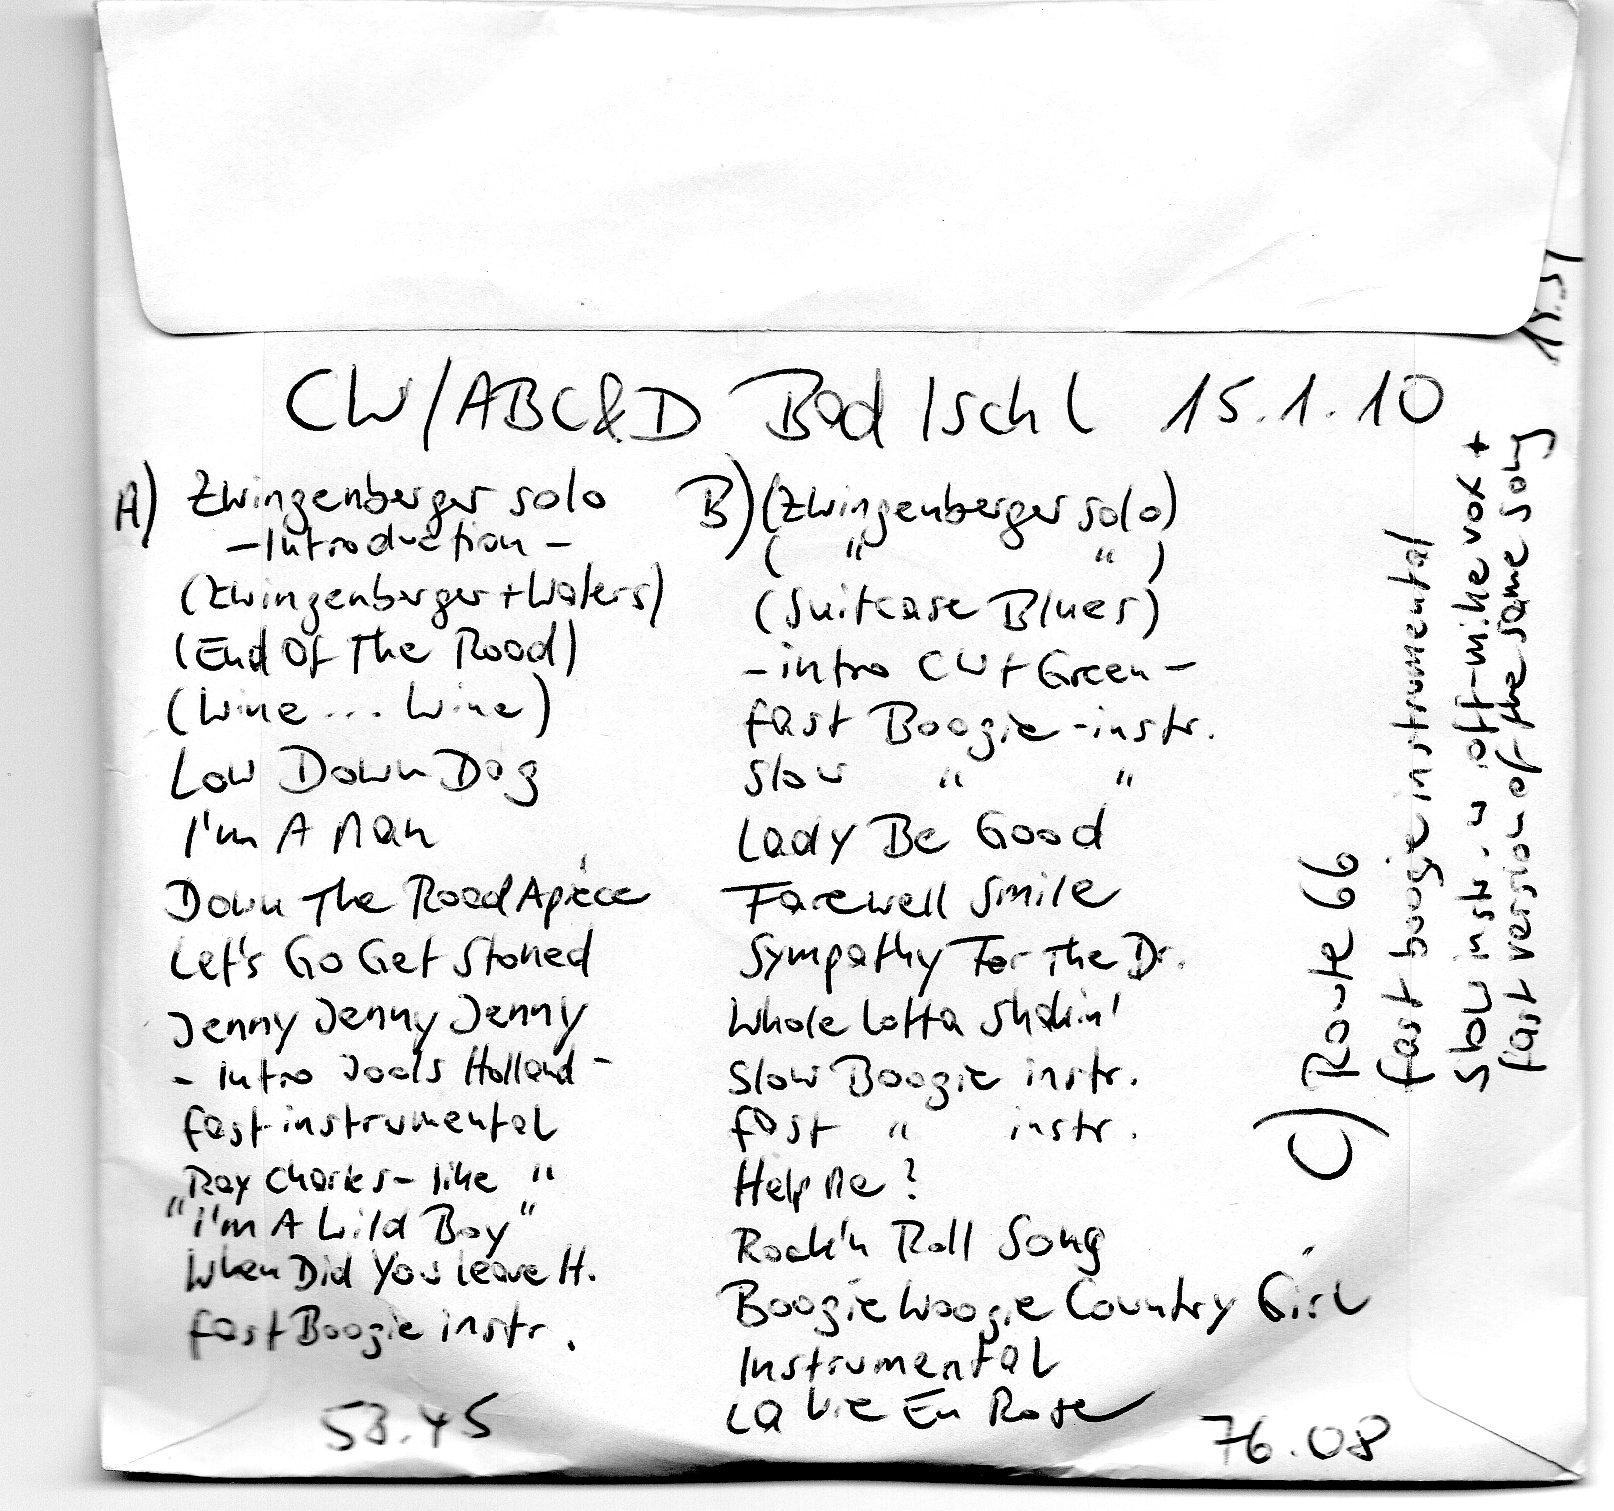 CW/ABC&D Bad Ischl 15.1.10
A) Zwingenberger solo
- Introduction -
(Zwingenberger + Waters)
(End Of The Road)
(Wine ... Wine)
Low Down Dog
I'm A Man
Down The Road Apiece
Let's Go Get Stoned
Jenny Jenny Jenny
- Intro Jools Holland -
fast instrumental
Ray Charles-like "
"I'm A Wild Boy"
When Did You Leave H.
fast Boogie instr.
53.45
B) (Zwingenberger solo)
( " " )
(Suitcase Blues)
- intro CW + Green -
fast Boogie-instr.
Slow " "
Lady Be Good
Farewell Smile
Sympathy For The Dr.
Whole Lotta Shakin'
Slow Boogie instr.
fast " instr.
Help Me?
Rock'n Roll Song
Boogie Woogie Country Girl
Instrumental
La Vie En Rose
76.08
C) Route 66
fast boogie instrumental
Slow instr. w off-mike vox +
fast version of the same song